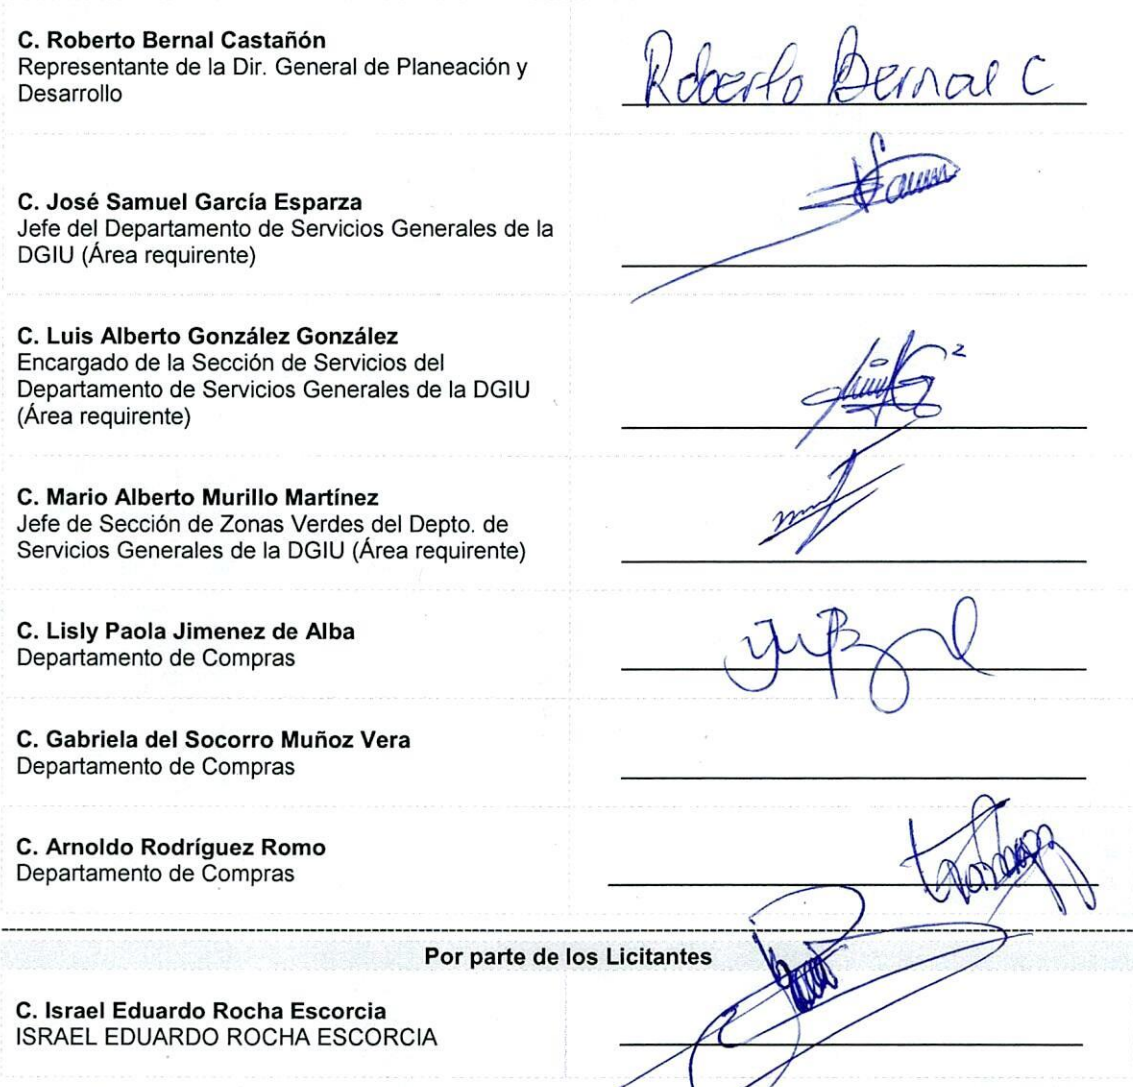 C. Roberto Bernal Castañón
Representante de la Dir. General de Planeación y
Desarrollo
Roberto Bernal C
C. José Samuel García Esparza
Jefe del Departamento de Servicios Generales de la
DGIU (Área requirente)
C. Luis Alberto González González
Encargado de la Sección de Servicios del
Departamento de Servicios Generales de la DGIU
(Área requirente)
C. Mario Alberto Murillo Martínez
Jefe de Sección de Zonas Verdes del Depto. de
Servicios Generales de la DGIU (Área requirente)
C. Lisly Paola Jimenez de Alba
Departamento de Compras
C. Gabriela del Socorro Muñoz Vera
Departamento de Compras
C. Arnoldo Rodríguez Romo
Departamento de Compras
Por parte de los Licitantes
C. Israel Eduardo Rocha Escorcia
ISRAEL EDUARDO ROCHA ESCORCIA